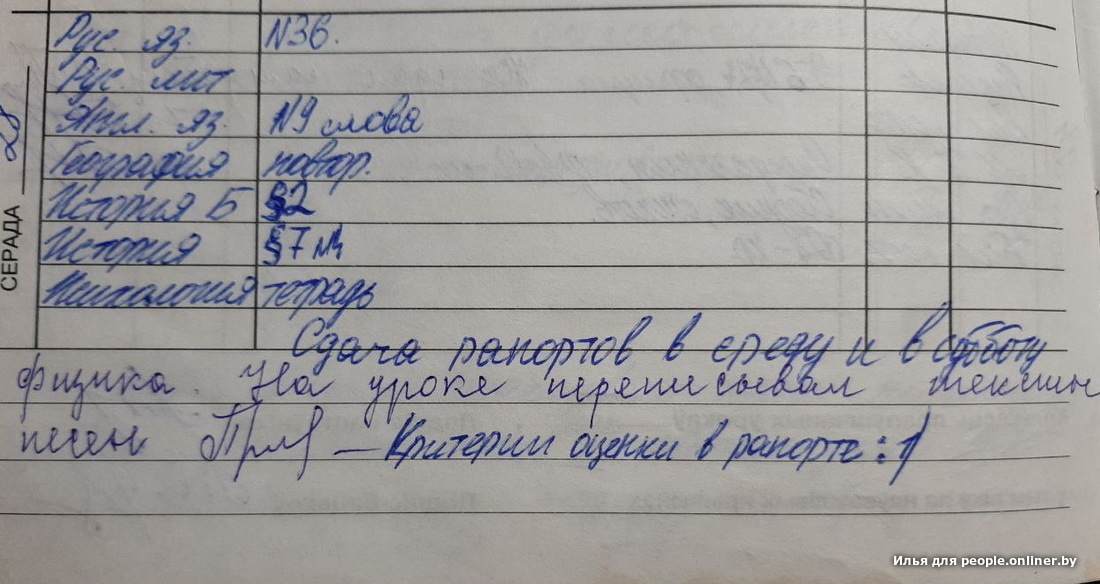 Рус. яз. N36.
Рус. лит
Англ. яз. N9 слова
География повтор.
История Б §2
История §7
Психология тетрадь
СЕРАДА 28
Сдача рапортов в среду и в субботу
физика. На уроке переписывал тексты
песен — Критерии оценки в рапорте :1)
Илья для people.onliner.by